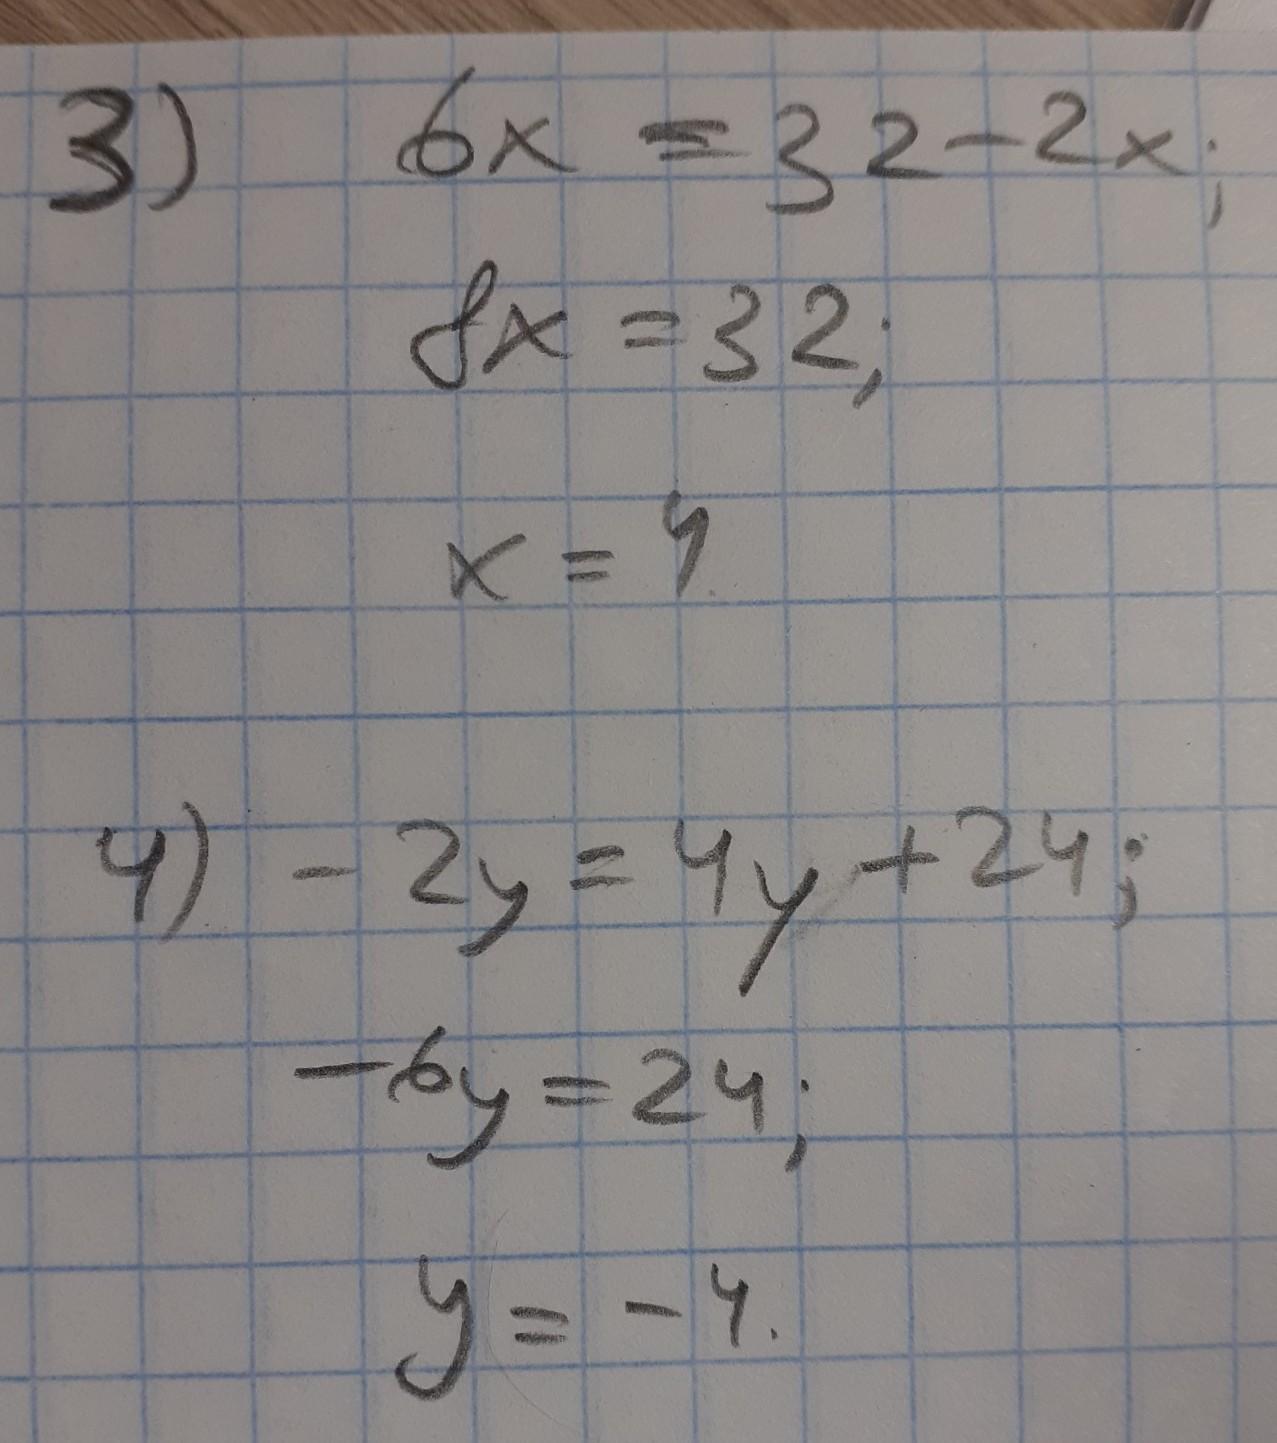 3) 6x = 32 - 2x;
8x = 32;
x = 4.
4) - 2y = 4y + 24;
- 6y = 24;
y = - 4.